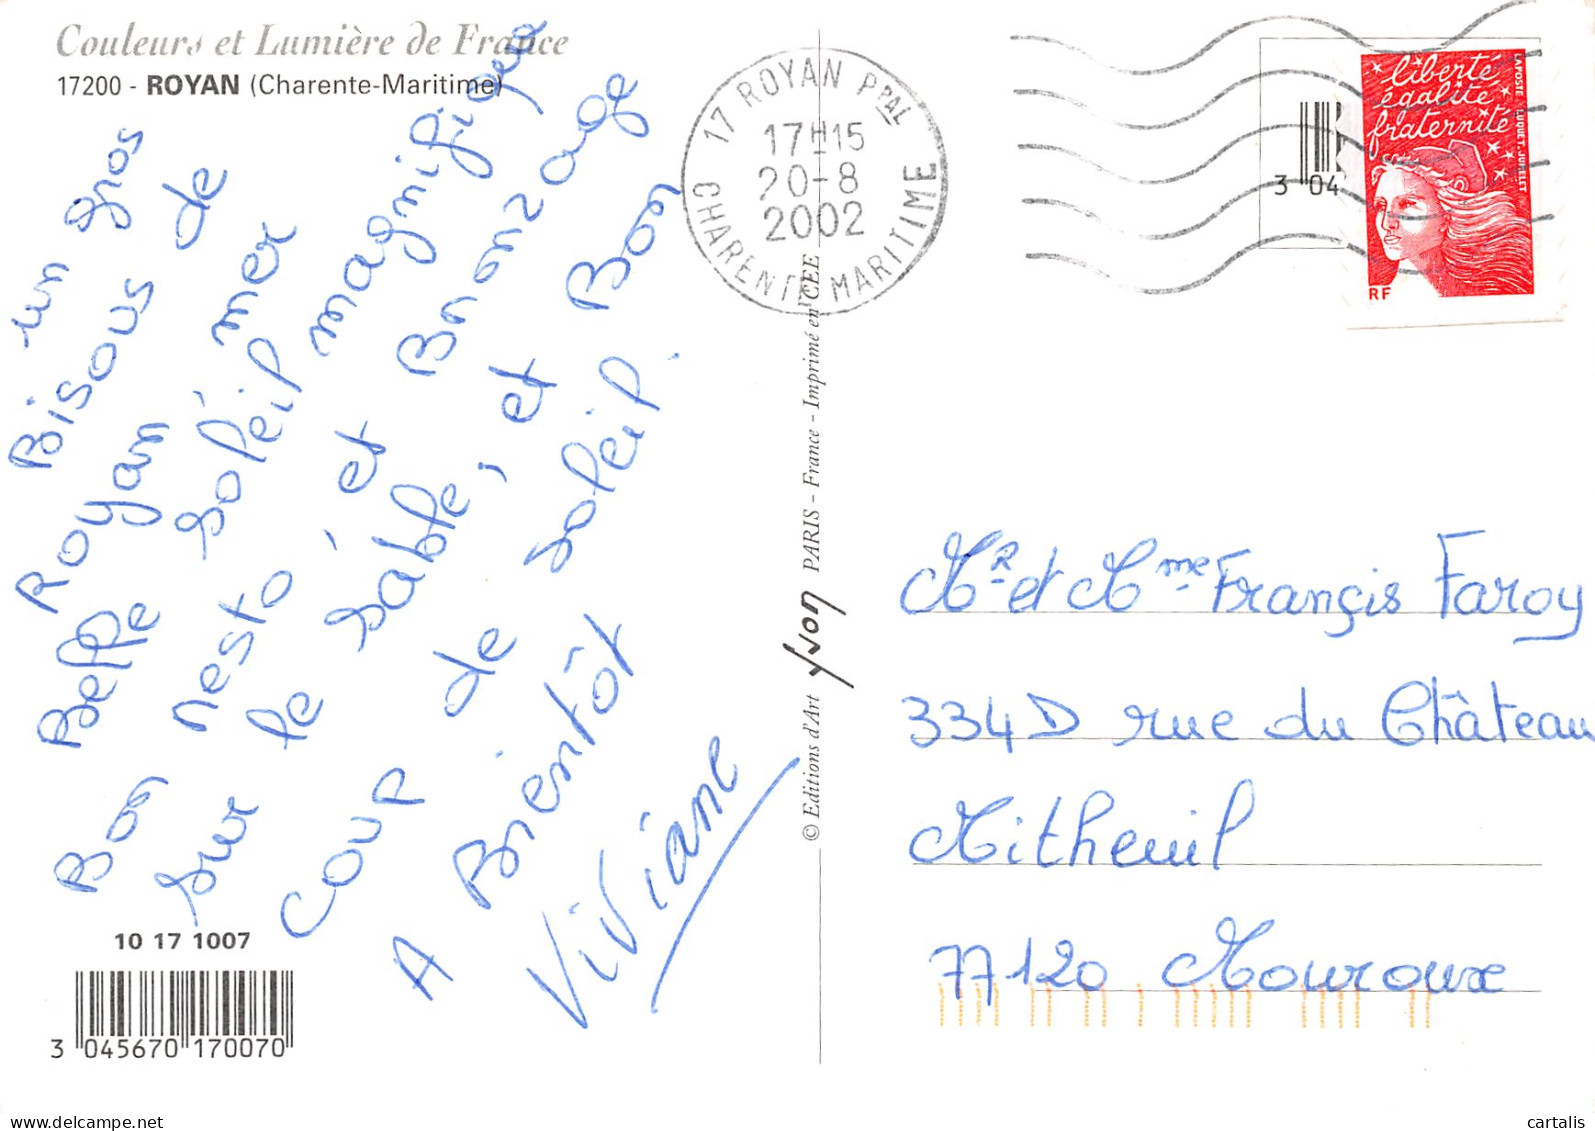 Couleurs et Lumière de France
17200 - ROYAN (Charente-Maritime)
un gros
Bisous de
Royan, mer
Belle soleil magnifique
Bon resto et Bronzage
sur le sable, et Bon
coup de soleil.
A Bientôt
Viviane
10 17 1007
3 045670 170070
© Editions d'Art yvon PARIS - France - Imprimé en CEE
17 ROYAN PPAL
17H15
20-8
2002
CHARENTE MARITIME
3 04
liberté
égalité
fraternité
LAPOSTE LUQUET-JUMELET
RF
Mr et Mme Françis Faroy
334D rue du Château
Mitheuil
77120 Mouroux
delcampe.net
cartalis